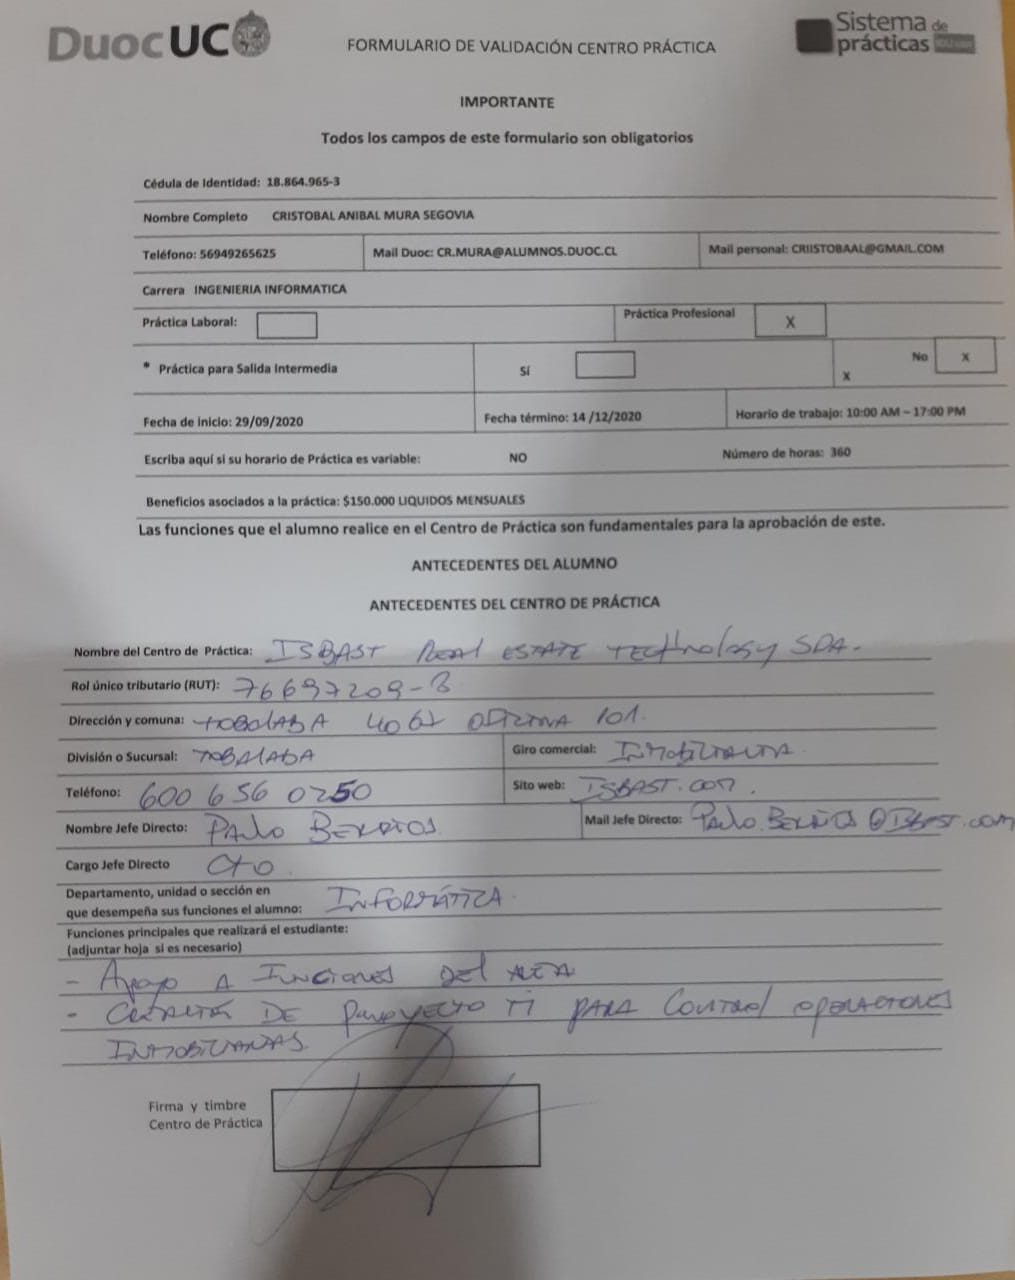 DuocUC
FORMULARIO DE VALIDACIÓN CENTRO PRÁCTICA
Sistema de prácticas
IMPORTANTE
Todos los campos de este formulario son obligatorios
Cédula de Identidad: 18.864.965-3
Nombre Completo CRISTOBAL ANIBAL MURA SEGOVIA
Teléfono: 56949265625 Mail Duoc: CR.MURA@ALUMNOS.DUOC.CL Mail personal: CRIISTOBAAL@GMAIL.COM
Carrera INGENIERIA INFORMATICA
Práctica Laboral: Práctica Profesional X
* Práctica para Salida Intermedia Sí X No X
Fecha de inicio: 29/09/2020 Fecha término: 14 /12/2020 Horario de trabajo: 10:00 AM – 17:00 PM
Escriba aquí si su horario de Práctica es variable: NO Número de horas: 360
Beneficios asociados a la práctica: $150.000 LIQUIDOS MENSUALES
Las funciones que el alumno realice en el Centro de Práctica son fundamentales para la aprobación de este.
ANTECEDENTES DEL ALUMNO
ANTECEDENTES DEL CENTRO DE PRÁCTICA
Nombre del Centro de Práctica: ISBAST Real ESTATE TECHnology SPA.
Rol único tributario (RUT): 76697209-3
Dirección y comuna: TOBALABA 4067 OFICINA 101.
División o Sucursal: TOBALABA Giro comercial: INMOBILIARIA
Teléfono: 600 656 0250 Sito web: ISBAST.COM.
Nombre Jefe Directo: PAULO BERRIOS Mail Jefe Directo: PAULO.BERRIOS@ISBAST.COM
Cargo Jefe Directo CTO
Departamento, unidad o sección en
que desempeña sus funciones el alumno: INFORMÁTICA.
Funciones principales que realizará el estudiante:
(adjuntar hoja si es necesario)
- Apoyo A FUNCIONES DEL AREA
- DE PROYECTO TI PARA CONTROL OPERACIONES
INMOBILIARIAS
Firma y timbre
Centro de Práctica